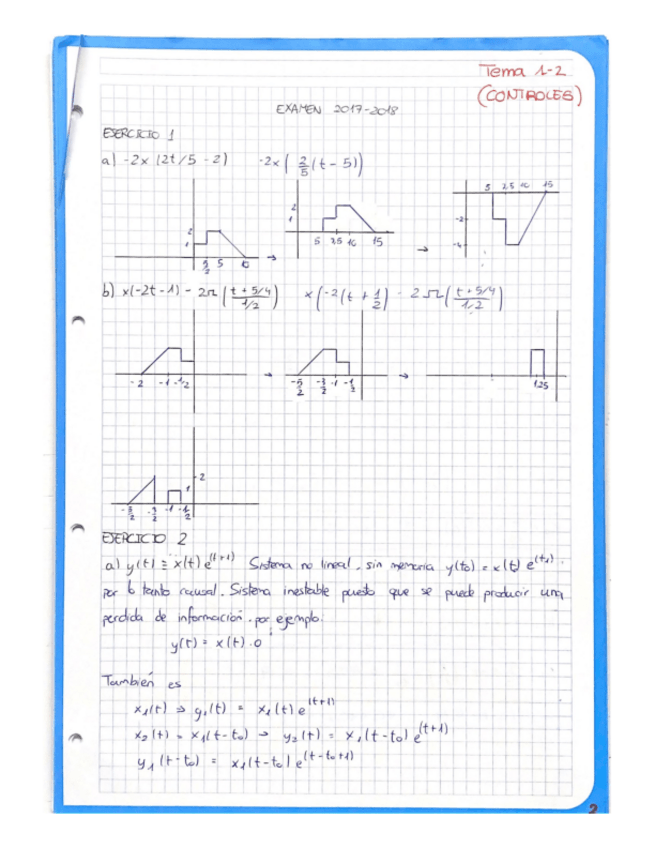 Tema 1-2
(CONTROLES)
EXAMEN 2017-2018
EJERCICIO 1
a) -2x (2t/5 - 2) -2x( 2/5 (t - 5))
2
1
5/2 5 10
2
1
5 7,5 10 15
5 7,5 10 15
-2
-4
b) x(-2t-1) - 2Π( (t + 5/4)/(1/2) ) x(-2(t + 1/2) - 2Π( (t + 5/4)/(1/2) )
-2 -1 -1/2
-5/2 -3/2 -1 -1/2
1,25
2
1
-5/2 -3/2 -1 -1/2
EJERCICIO 2
a) y(t) = x(t) e^(t+1) Sistema no lineal, sin memoria y(to) = x(t) e^(t1).
por lo tanto causal. Sistema inestable puesto que se puede producir una
perdida de información. por ejemplo:
y(t) = x(t) . 0
También es
x1(t) ⇒ y1(t) = x1(t) e^(t+1)
x2(t) = x1(t-to) → y2(t) = x1(t-to) e^(t+1)
y1(t-to) = x1(t-to) e^(t-to+1)
2